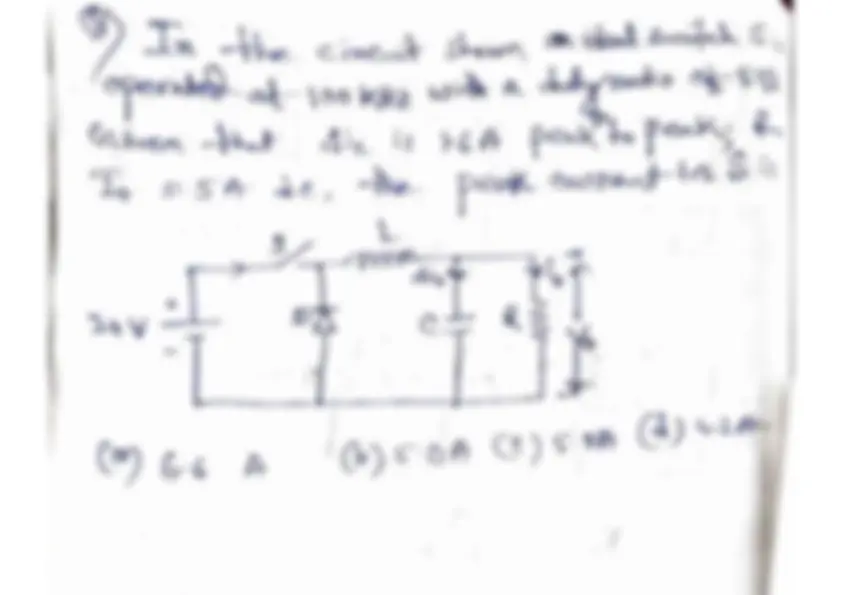 In the circuit shown ideal switch S
operated at 100 kHz with a duty ratio of
Given that is 1.6A peak to peak, &
I₀ = 5A dc, the peak current in S is
S L
24V
+
-
D C R
(a) 6.6 A (b) 5.0A (c) 5.8A (d) 4.2A